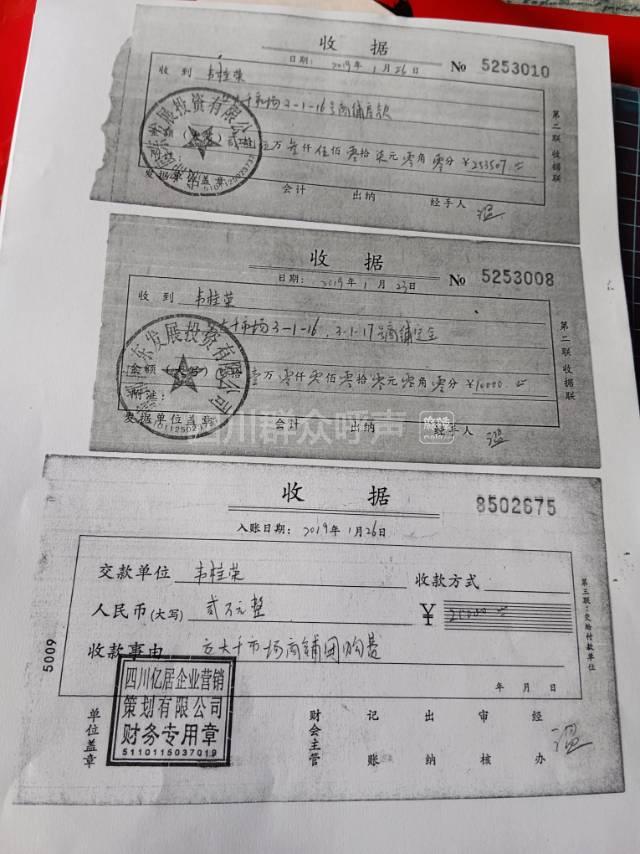 收据
日期: 2019年1月26日
No 5253010
收到 韦桂荣
市场3-1-16号商铺房款
万叁仟伍佰零拾柒元零角零分 ¥253507
发展投资有限公
会计 出纳 经手人
第二联 收据联
收据
日期: 2019年1月23日
No 5253008
收到 韦桂荣
市场3-1-16, 3-1-17号商铺定金
金额 壹万零仟零佰零拾零元零角零分 ¥10000
附注:
东发展投资有限公司
收据单位盖章
会计 出纳 经手人
第二联 收据联
四川群众呼声
收据
8502675
入账日期: 2019年1月26日
交款单位 韦桂荣 收款方式
人民币(大写) 贰万元整 ¥ 20000
收款事由 大千市场商铺团购费
年 月 日
四川亿居企业营销
策划有限公司
财务专用章
5110115037019
单位盖章 财会主管 记账 出纳 审核 经办
第三联:交给付款单位
5009